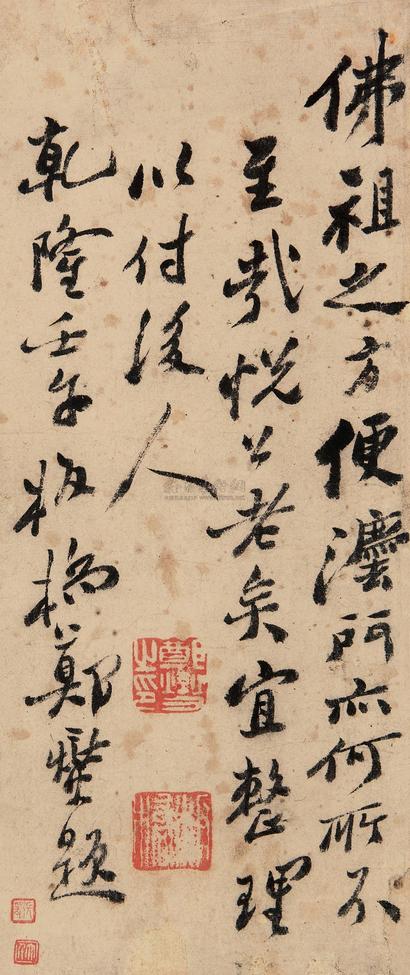 佛祖之方便灋門亦何所不
至哉悅公老矣宜整理
以付後人
乾隆壬午板橋鄭燮題
鄭燮之印